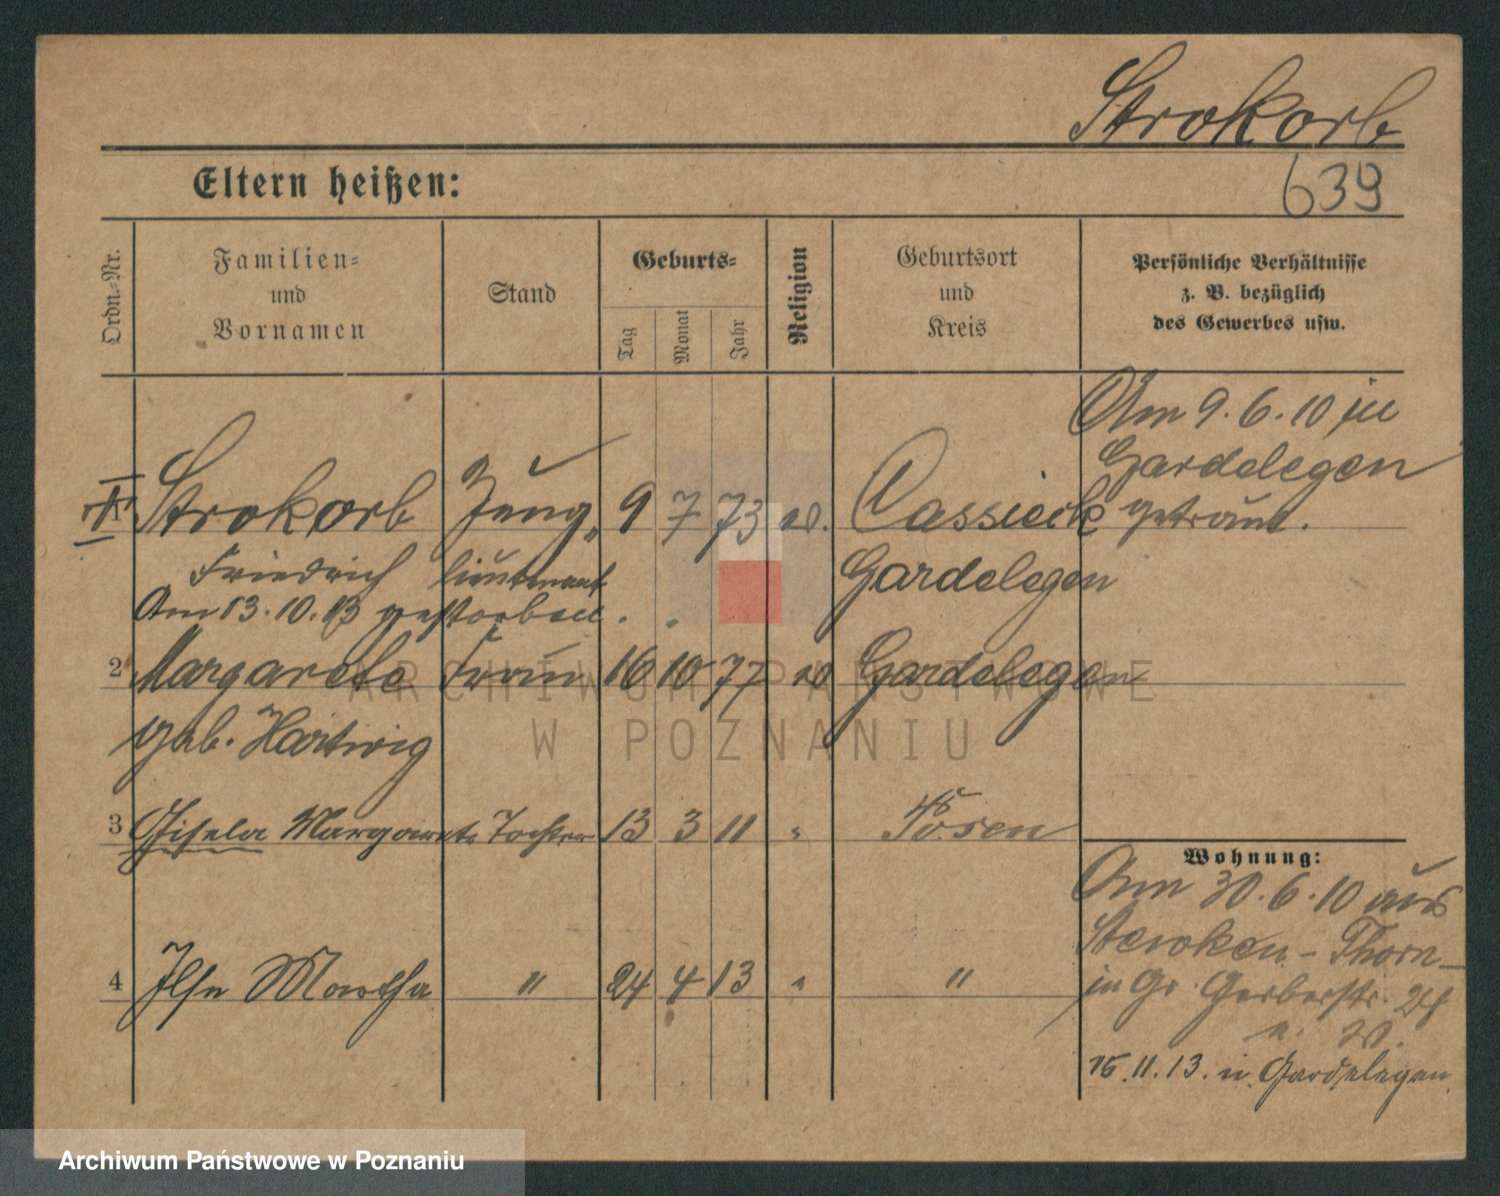 Strokorb
639
Eltern heißen:
Ordn.-Nr.
Familien-
und
Vornamen
Stand
Geburts-
Tag
Monat
Jahr
Religion
Geburtsort
und
Kreis
Persönliche Verhältnisse
z. B. bezüglich
des Gewerbes usw.
Am 9.6.10 in
Gardelegen
getraut.
1 Strokorb Zeug- 9 7 73 ev. Cassieck
Friedrich lieutenant Gardelegen
Am 13.10.13 gestorben.
2 Margarete Frau 16 10 77 ev Gardelegen
geb. Hartwig
3 Gisela Margarete Tochter 13 3 11 " Posen
4 Ilse Martha " 24 4 13 " "
Wohnung:
Am 30.6.10 aus
Stewken-Thorn-
in Gr. Gerberstr. 24
15.11.13. n. Gardelegen.
ARCHIWUM PAŃSTWOWE
W POZNANIU
Archiwum Państwowe w Poznaniu